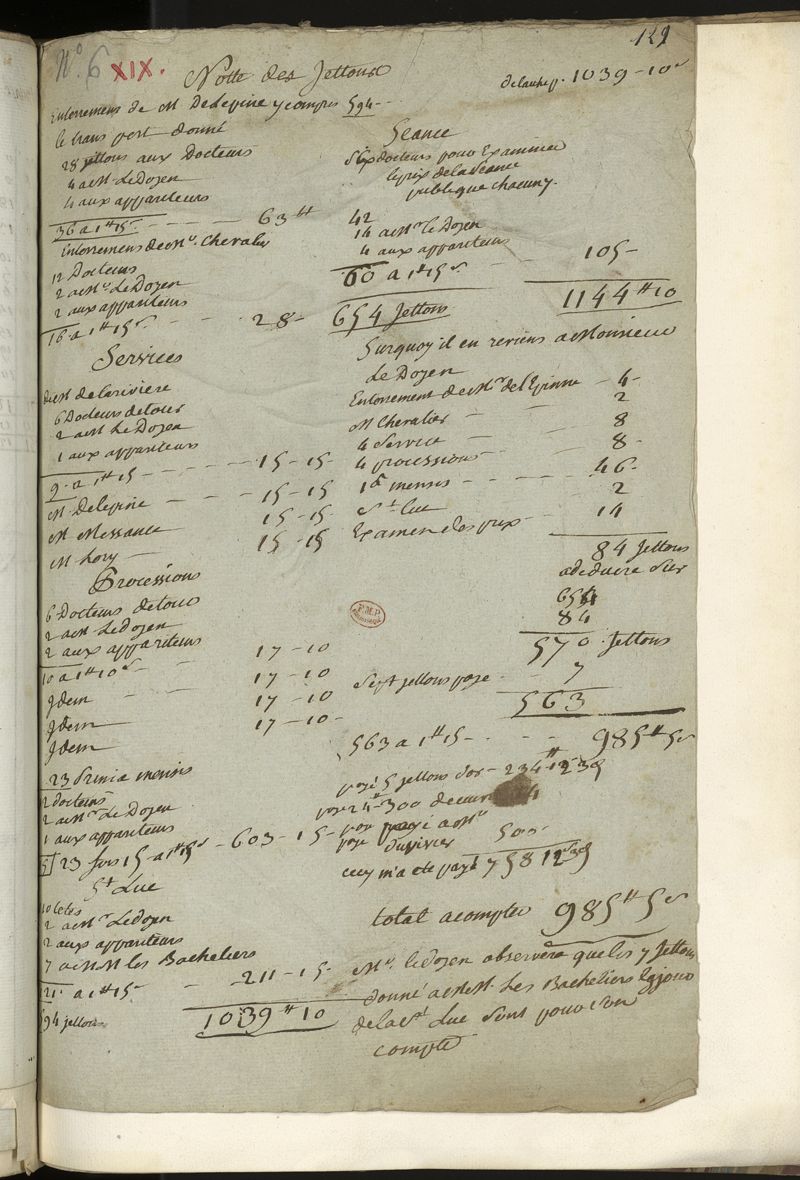 N° 6 XIX.
129
Notte des Jettons
Enterremens de M Delepine y compris
le trans port donné
28 jettons aux Docteurs
4 a M. Le Doyen
4 aux appariteurs
36 a 1# 15s - - - 63#
Enterremens de Mr. Chevalier
12 Docteurs
2 a Mr. Le Doyen
2 aux appariteurs
16 a 1# 15s - - - 28-
Services
de M de lariviere
6 Docteurs detour
2 a M Le Doyen
1 aux appariteurs
9 a 1# 15 - - - 15-15-
M Delepine - - - 15-15
M Messance 15-15
M hory - 15-15
Processions
6 Docteurs detour
2 a M. Le Doyen
2 aux appariteurs
10 a 1# 10s - - 17-10
Idem - - 17-10
Idem 17-10
Idem 17-10-
23 Prima mensis
12 docteurs
2 a Mr. Le Doyen
1 aux appariteurs
15 23 fois 15 a 1# 15s - 603-15-
St Luc
10 tetes
2 a Mr Le doyen
2 aux appariteurs
7 a M M les Bacheliers
21 a 1# 15 - - 211-15-
594 jettons 1039# 10
de l'autre p. 1039-10s
594-
Seance
Six docteurs pour Examiner
le prix de la Seance
publique chacun 7.
42
14 a Mr. le Doyen
4 aux appariteurs
60 a 1# 15s - - 105-
654 Jettons 1144# 10
Surquoy il en reviens a Monsieur
Le Doyen
Enterrement de Mr de l'Epinne - 4-
M Chevalier - - 2
4 Service - - 8
4 processions - - 8-
1a mensis - - - 46-
St Luc 2
Examen des prix - - 14
84 Jettons
a deduire sur
654
84
570 Jettons
Sept jettons paye - - 7
563
563 a 1# 15 - - - 985# 5s
payé 5 jettons d'or - 234# 12s 3d
500-
ceey m'a ete payé 758 12s 3d
total a compter 985# 5s
Mr. le doyen observera que les 7 Jettons
donné a M M. Les Bacheliers le jour
de la St Luc sont pour son
compte